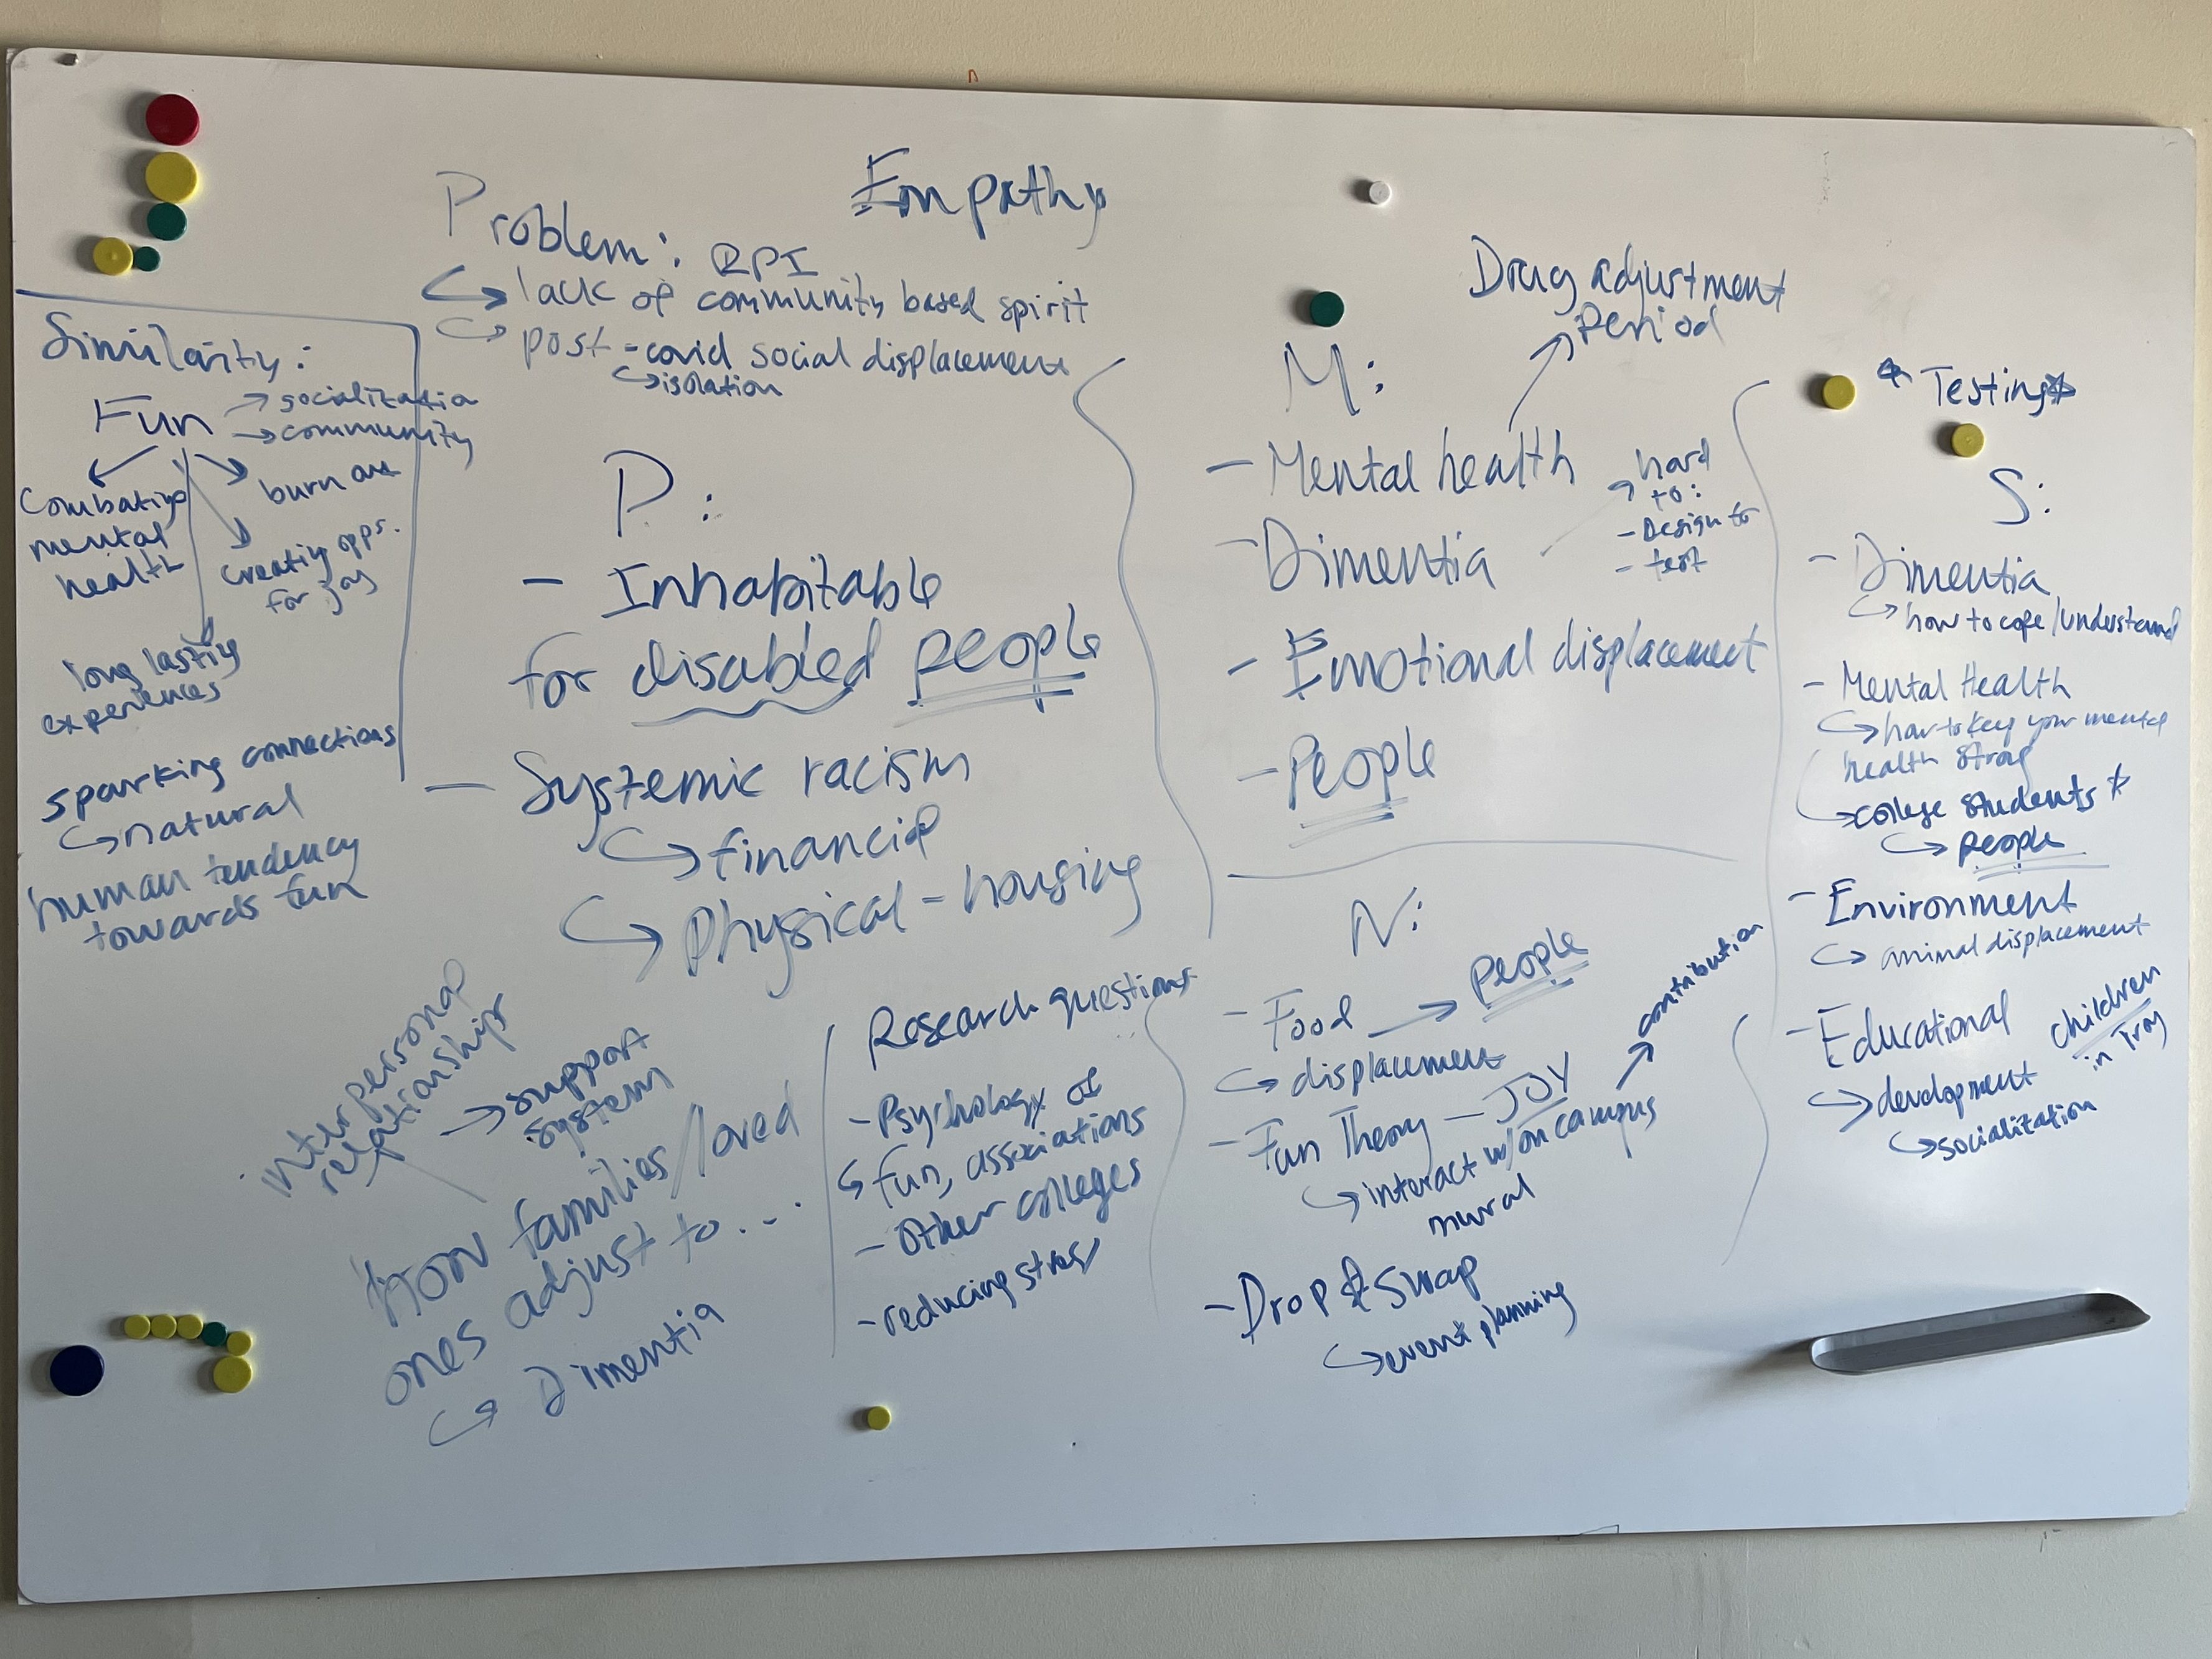 Empathy
Problem: RPI
lack of community based spirit
post-covid social displacement
isolation
Similarity:
Fun
socialization
community
Combating
mental
health
burn out
creating opps.
for joy
long lasting
experiences
sparking connections
natural
human tendency
towards fun
P:
- Inhabitable
for disabled people
- Systemic racism
financial
Physical - housing
interpersonal
relationships
support
system
How families/loved
ones adjust to...
Dimentia
Research questions
- Psychology of
fun, associations
- Other colleges
- reducing stress
Drug adjustment
period
M:
- Mental health
- Dimentia
hard
to:
- Design to
- test
- Emotional displacement
- People
N:
- Food
people
displacement
- Fun Theory - JOY
contribution
interact w/on campus
mural
- Drop & Swap
event planning
* Testing *
S:
- Dimentia
how to cope/understand
- Mental Health
how to keep your mental
health strong
college students *
people
- Environment
animal displacement
- Educational
children
in Troy
development
socialization